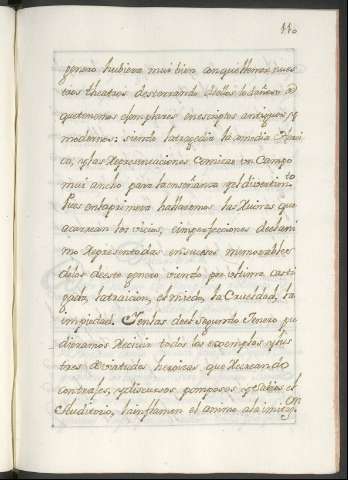 110
genero hubiera mui bien con que llenar nues
tros theatros desterrando de ellos lo dañoso de
que tenemos exemplares en escriptos antiguos, y
modernos: siendo la tragedia la comedia
ca, y las Representaciones Comicas un Campo
mui ancho para la enseñanza y el divertimto.
Pues en la primera hallaremos las Ruinas que
acarrean los vicios, e imperfecciones del ani
mo Representadas en sucesos memorables
de los de este genero viendo por ultimo casti
gada, la traicion, el miedo, la Crueldad, la
impiedad. Y en las de el segundo Genero pu
dieramos Recivir todos los exemplos ylus
tres de virtudes heroicas que Recreando
con trages, y discursos pomposos y sabios el
Auditorio, la inflamen el animo a la imitaon.